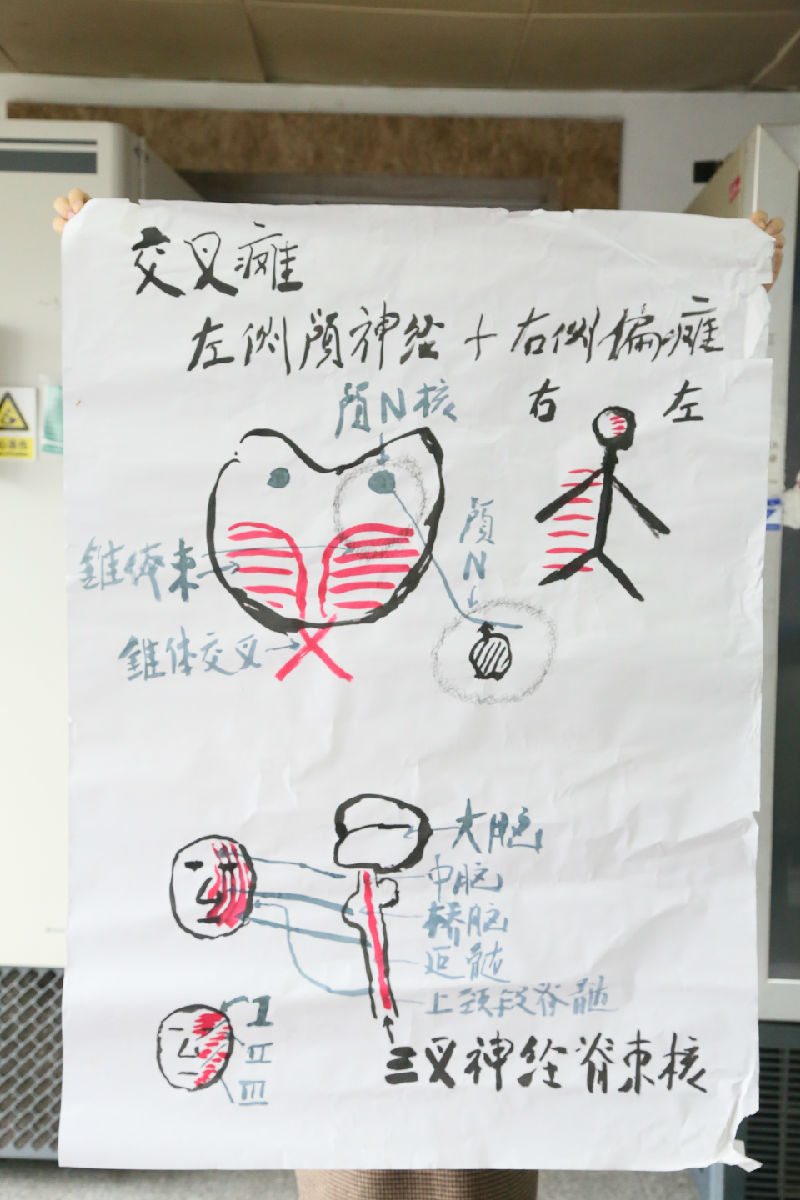 交叉瘫
左侧颅神经+右侧偏瘫
颅N核
右 左
颅N
锥体束
锥体交叉
大脑
中脑
桥脑
延髓
上颈段脊髓
I
II
III
三叉神经脊束核